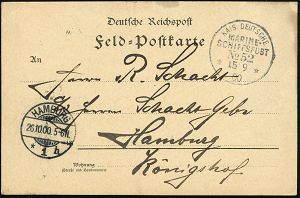 Deutsche Reichspost
Feld-Postkarte
KAIS. DEUTSCHE
MARINE-
SCHIFFSPOST
No 52
15 9
00
An
Herrn R. Schacht
Herren Schacht Gebr.
HAMBURG
26.10.00. 5-6N.
* 1 h
Hamburg
Königshof
Wohnung
(Straße und Hausnummer)